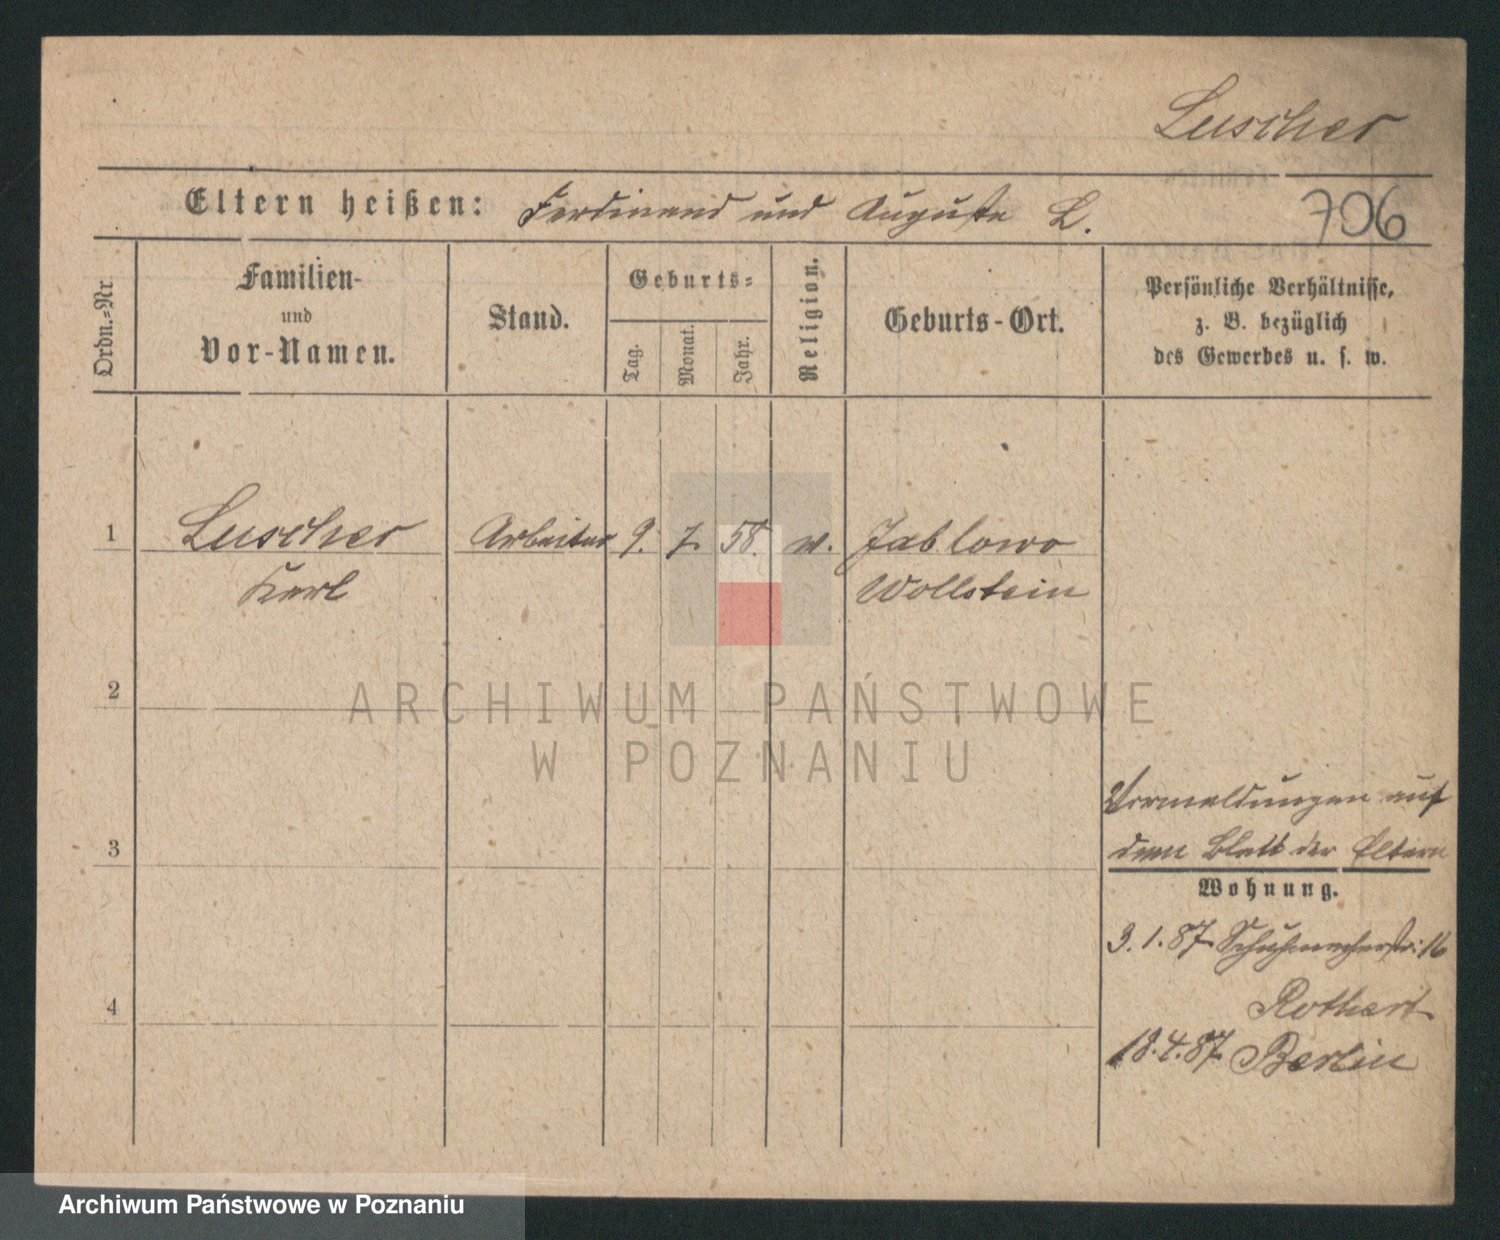 Luscher
Eltern heißen: Ferdinand und Auguste L.
706
Ordn.-Nr.
Familien-
und
Vor-Namen.
Stand.
Geburts-
Tag.
Monat.
Jahr.
Religion.
Geburts-Ort.
Persönliche Verhältnisse,
z. B. bezüglich
des Gewerbes u. s. w.
1 Luscher Arbeiter 9. 7. 58. w. Jablowo
Karl Wollstein
2
ARCHIWUM PAŃSTWOWE
W POZNANIU
Vormeldungen auf
3
dem Blatt der Eltern
Wohnung.
3.1.87 Schuhmacherstr: 16
4
Rothert
18.4.87 Berlin
Archiwum Państwowe w Poznaniu